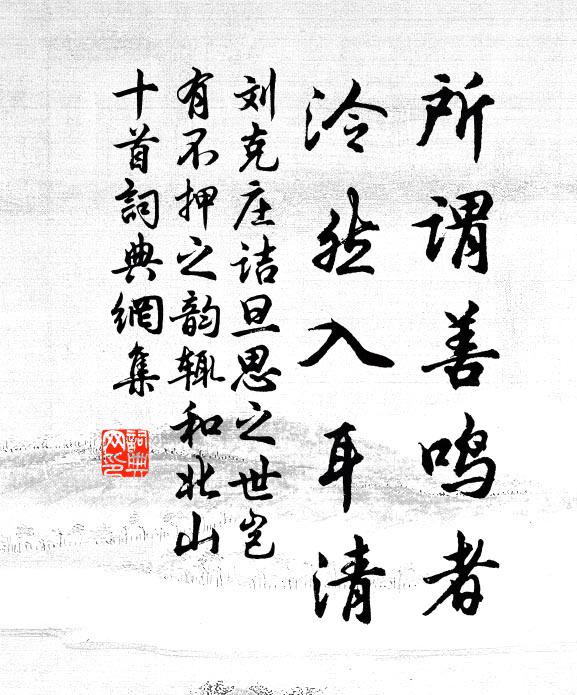 所谓善鸣者
泠然入耳清
刘克庄诘旦思之世岂
有不押之韵辄和北山
十首詞典網集
詞典網印